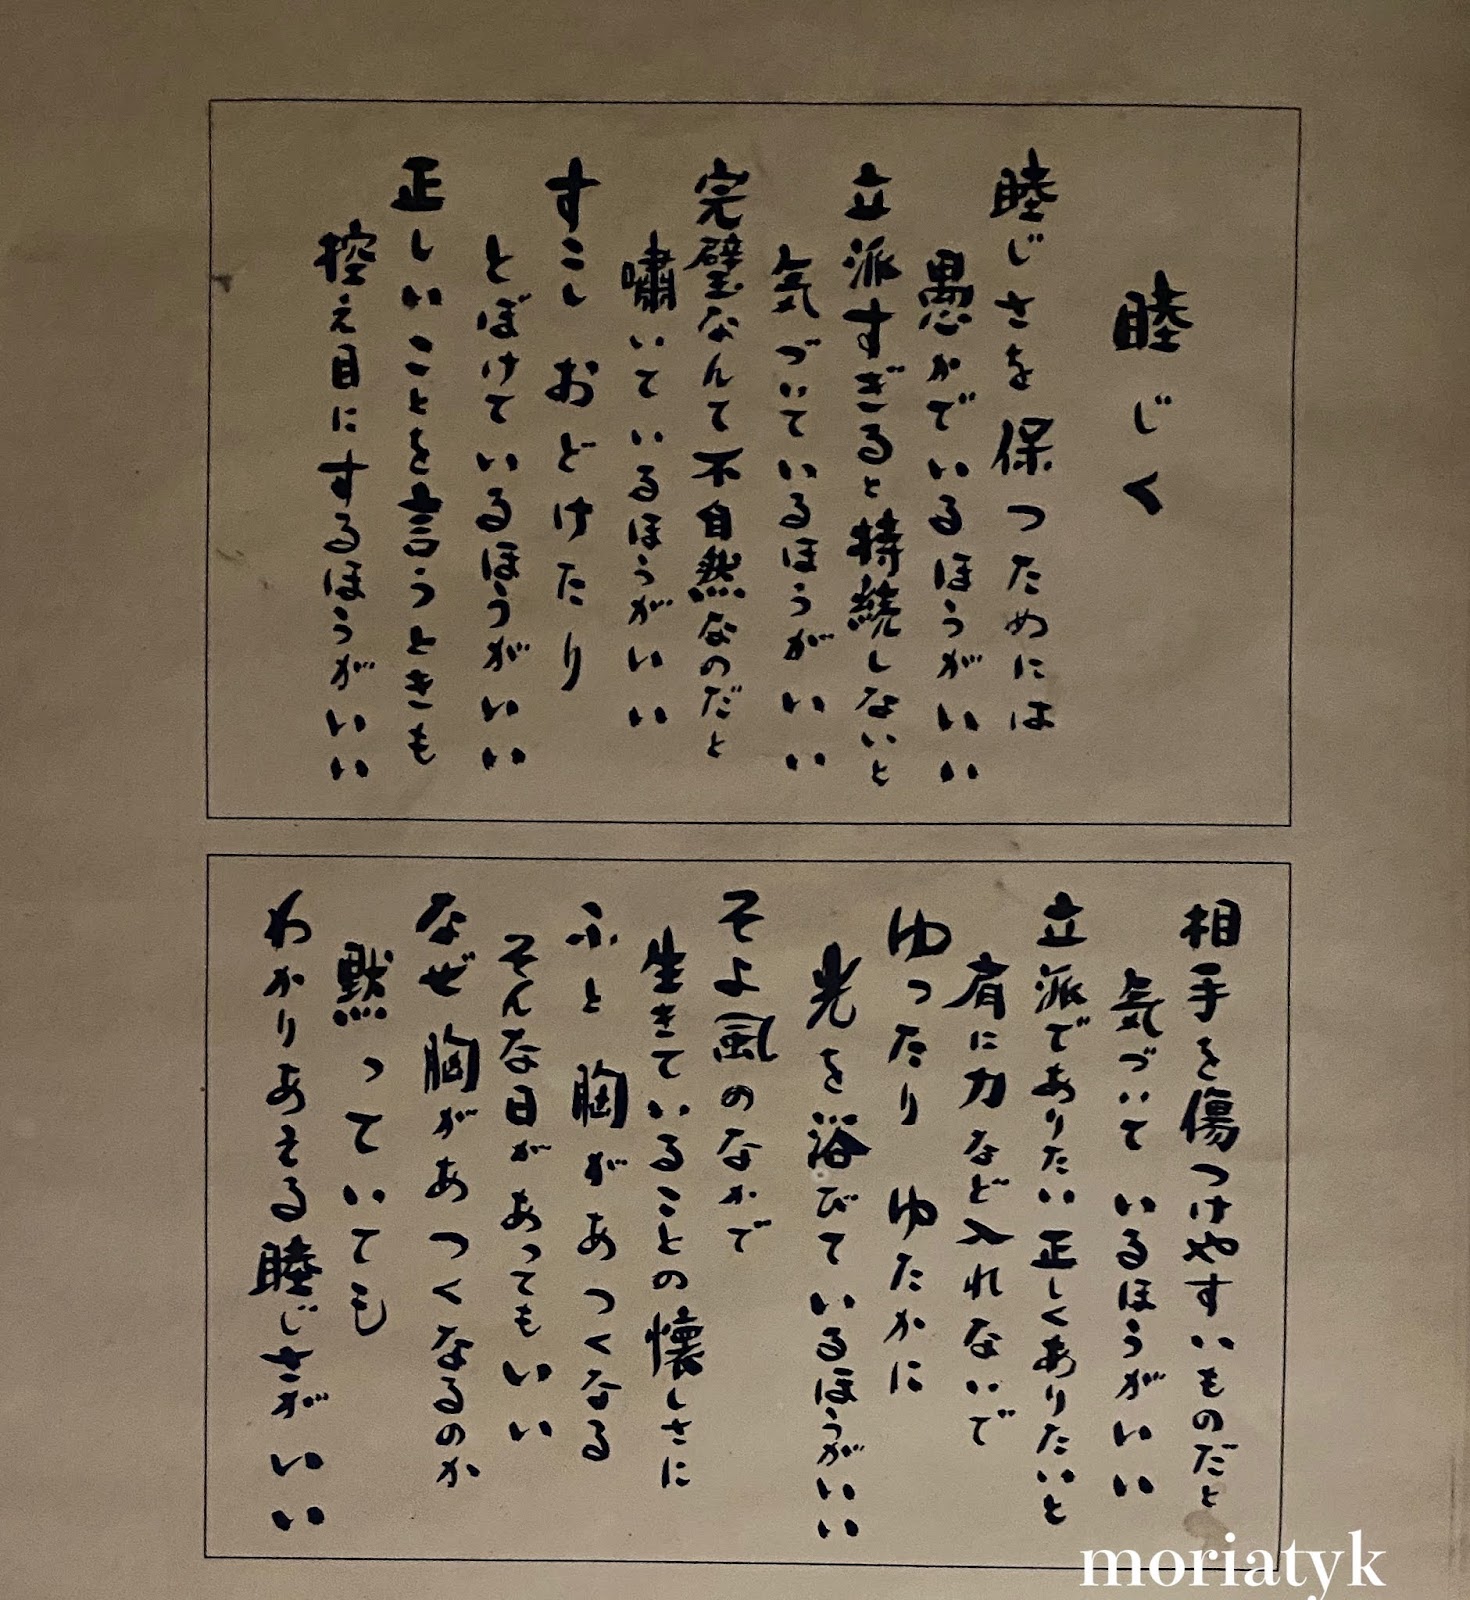 睦じく
睦じさを保つためには
愚かでいるほうがいい
立派すぎると持続しないと
気づいているほうがいい
完璧なんて不自然なのだと
嘯いているほうがいい
すこしおどけたり
とぼけているほうがいい
正しいことを言うときも
控え目にするほうがいい
相手を傷つけやすいものだと
気づいているほうがいい
立派でありたい正しくありたいと
肩に力など入れないで
ゆったり ゆたかに
光を浴びているほうがいい
そよ風のなかで
生きていることの懐しさに
ふと 胸があつくなる
そんな日があってもいい
なぜ胸があつくなるのか
黙っていても
わかりあえる睦じさがいい
moriatyk